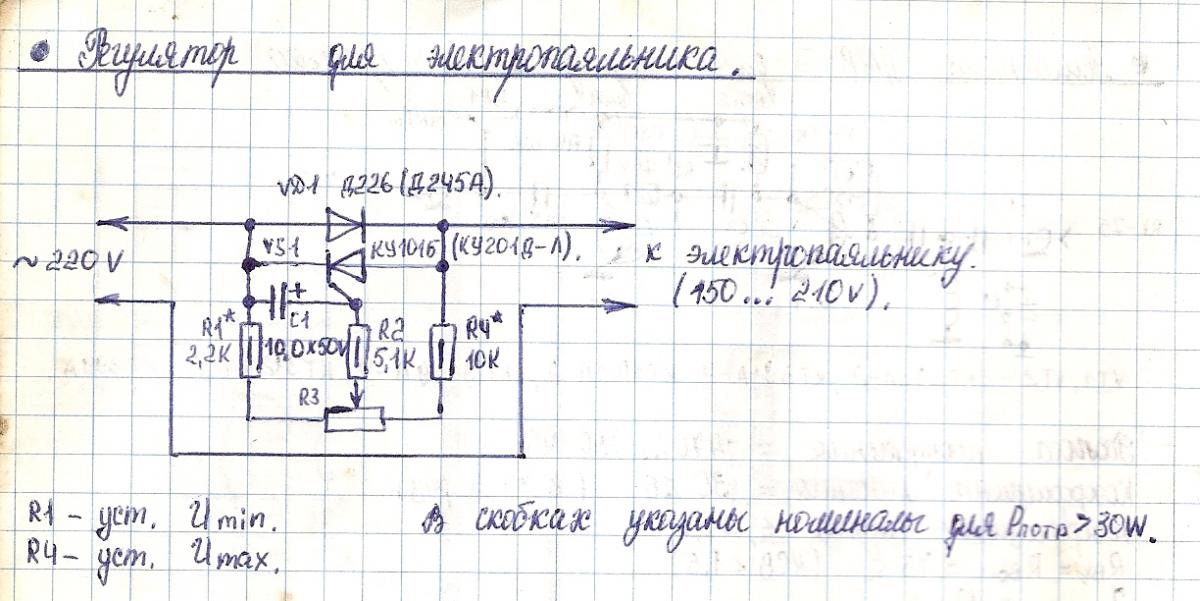 • Регулятор для электропаяльника.
VD1 Д226 (Д245А).
~ 220 V
VS1 КУ101Б (КУ201Д-Л).
к электропаяльнику.
(150... 210v).
+
C1
10,0x50V
R1*
2,2К
R2
5,1К
R4*
10К
R3
R1 - уст. Umin.
R4 - уст. Umax.
В скобках указаны номиналы для Pпотр > 30W.